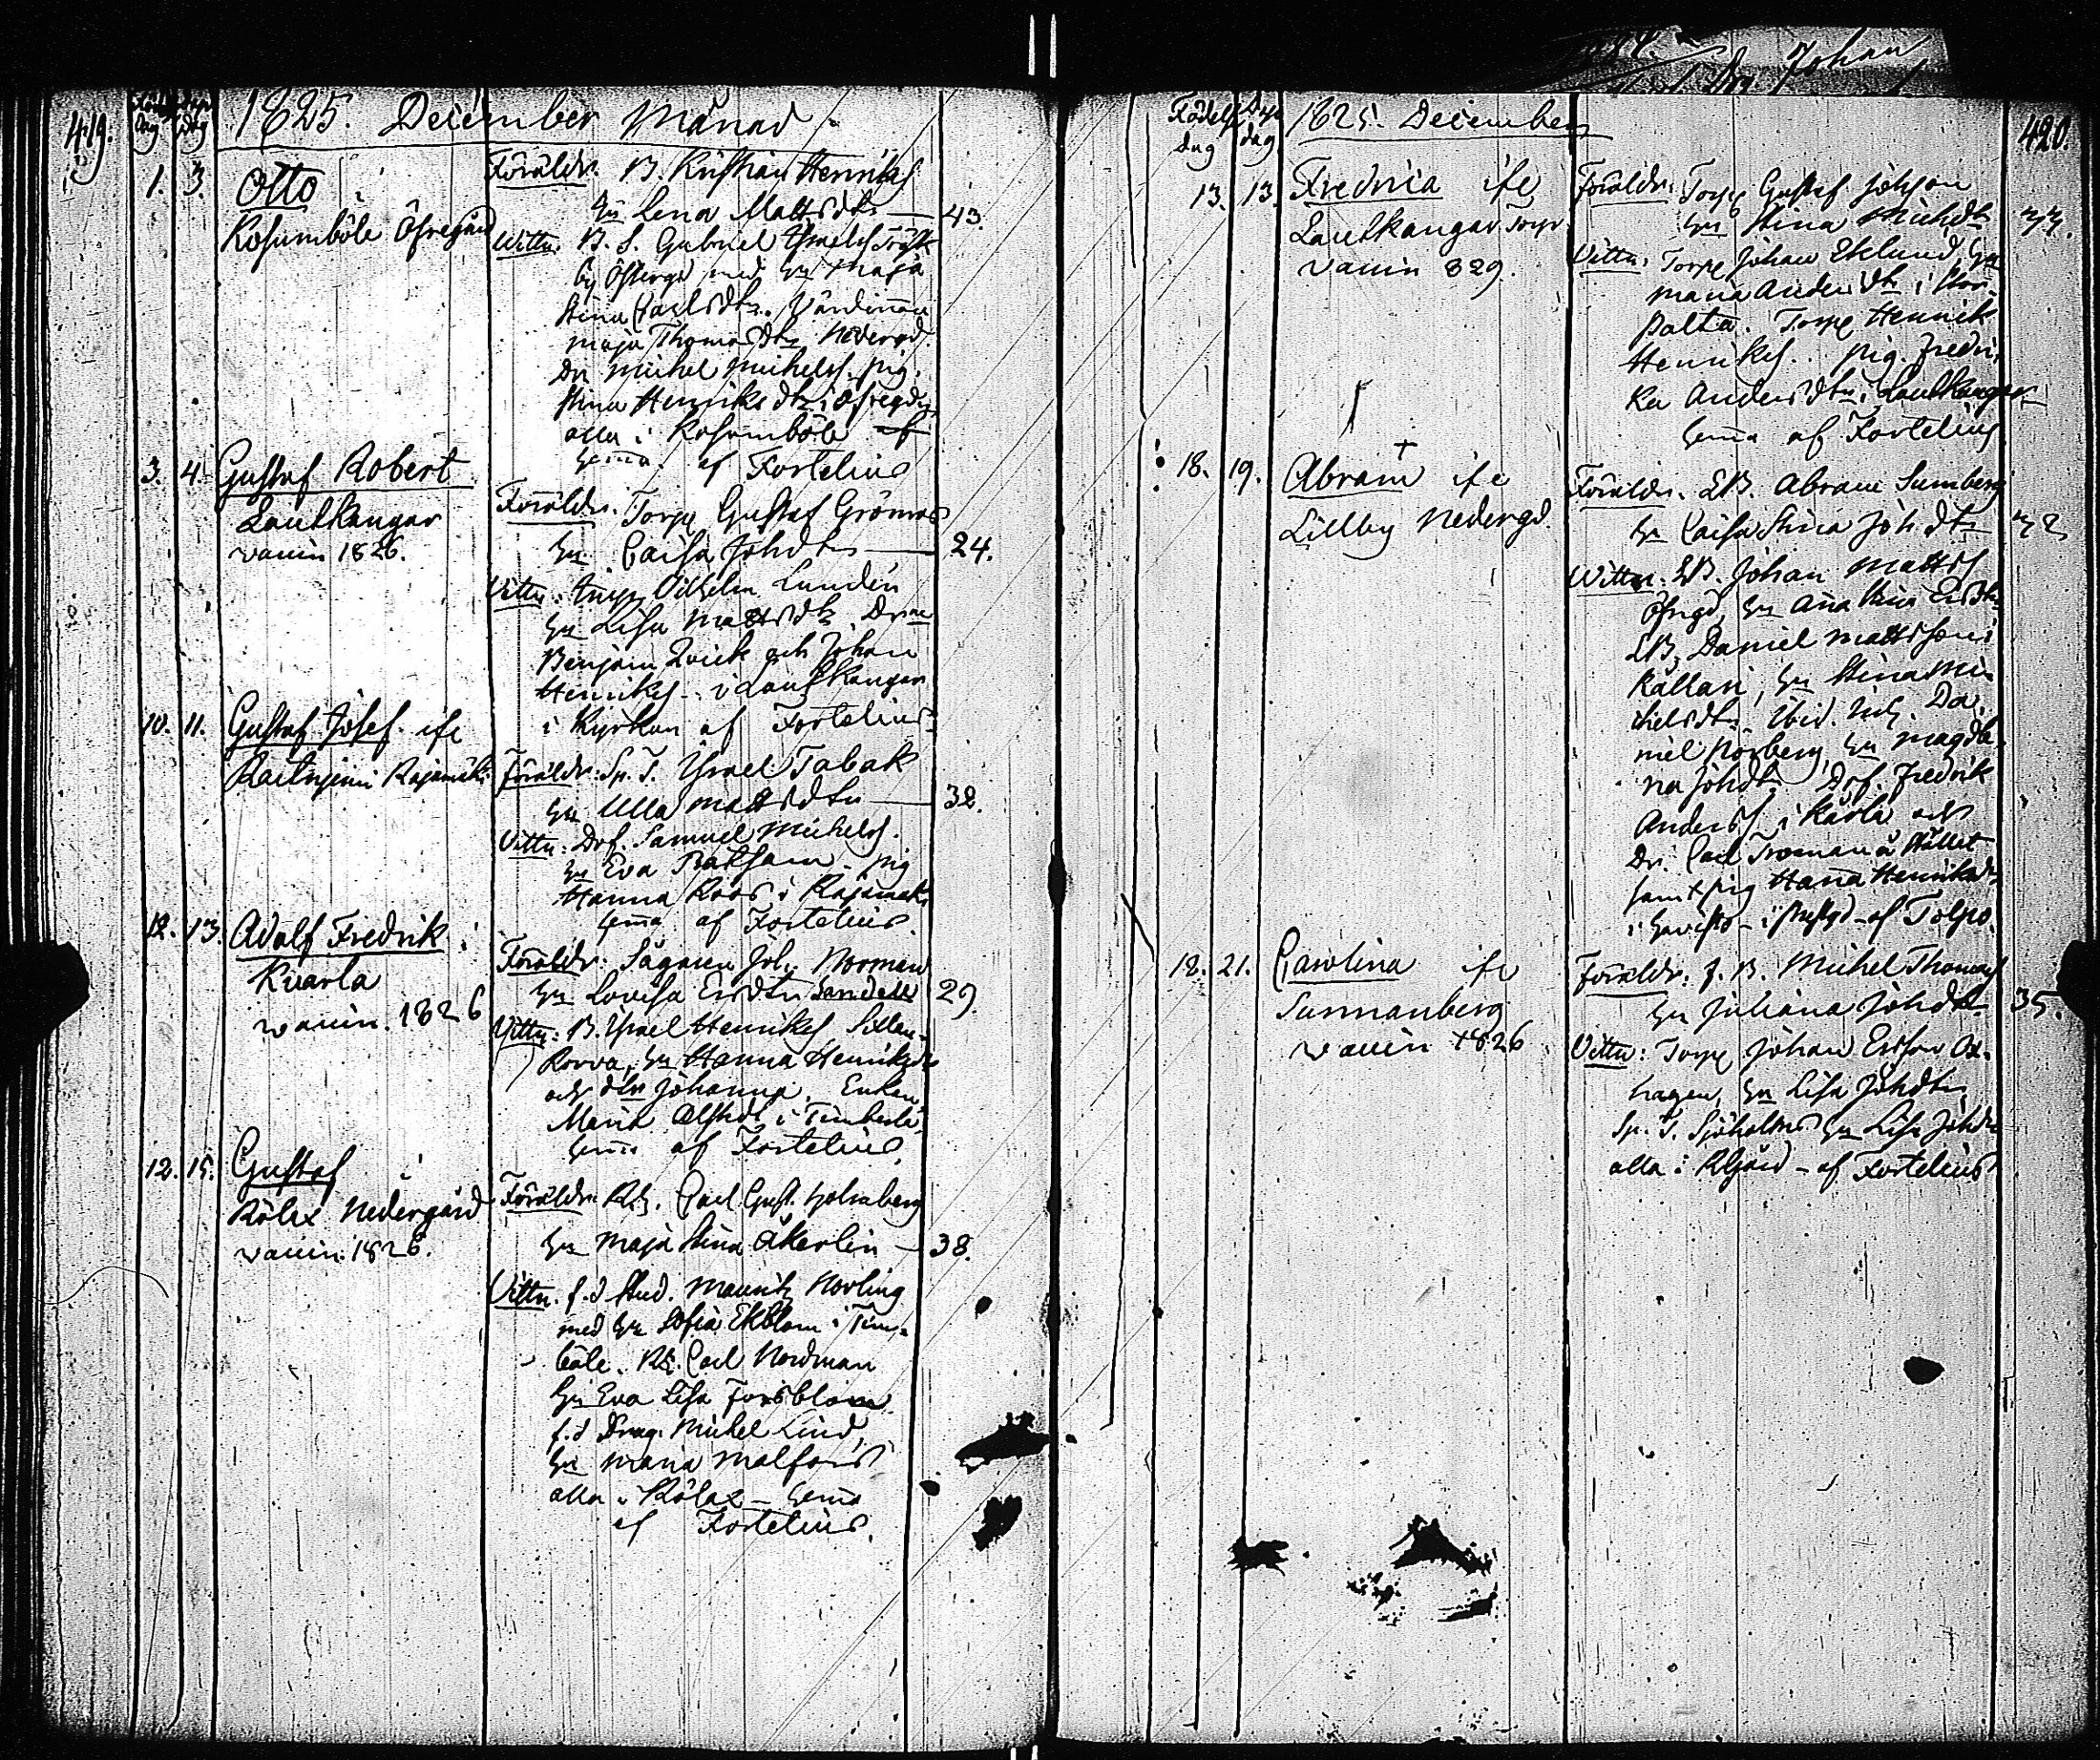 419.
dag dag
1825. December Månad.
1. 3. Otto
Kosumböle Öfregård
Föräldr. B. Kristian Henrikss
hu Lena Mattsdtr — 43.
Wittn. B. S. Gabriel
by med hu Maja
Stina Carlsdtr. Värdinnan
Maja Thomasdtr Nedergd.
Dr Michel Michelss. pig.
Stina Henriksdtr i Öfregd
alla i Kosumböle
hema af Fortelius
3. 4. Gustaf Robert
Lautkangar
vaccin 1826.
Föräldr. Torp Gustaf Grönroos
hu Caisa Johdtr — 24.
Vittn. Vilhelm Lundén
hu Lisa Mattsdtr. Drne
Benjam Qvick och Johan
Henrikss i Lautkangar
i Kyrkan af Fortelius
10. 11. Gustaf Josef ife
Rajamäki
Föräldr. Sp. T. Ysrael Tabak
hu Ulla Mattsdtr — 32.
Vittn: Drf. Samuel Michelss.
hu Eva pig
Hanna Roos i Rajamäki
hema af Fortelius.
12. 13. Adolf Fredrik i
Kvarla
vaccin. 1826
Föräldr. Sågaren Joh. Norman
hu Lovisa Ersdtr Sandell 29.
Vittn: B. Ysrael Henrikss
hu Hanna Henriksdtr
och dtr Johanna. Enkan
Maria i
hema af Fortelius.
12. 15. Gustaf i
Kölax Nedergård
vaccin. 1826.
Föräldr. Carl Gust. Holmberg
hu Maja Stina Åkerlin — 38.
Vittn. f.d Stud. Mauritz Norling
med hu Sofia Ekblom i Tim-
böle. Carl Nordman
hu Eva Lisa Forsblom
f.d Drag. Michel Lind,
hu Maria Malfors
alla i Kölax — hema
af Fortelius.
Johan
Födelse Dop
dag dag
1825. December
420.
13. 13. Fredrica ife
Lautkangar Torp
vaccin 829.
Föräldr. Torp Gustaf Johsson
hu Stina Michsdtr 33.
Vittn. Torp Johan Eklund, hu
Maria Andersdtr i Stor-
palta. Torp Henrik
Henrikss. pig. Fredri-
ka Andersdtr i Lautkangar
hema af Fortelius
18. 19. Abram ife
Lillby Nedergd
Föräldr. LB. Abram Sumberg
hu Caisa Stina Johdtr 32
Wittn. LB. Johan Mattss
Öfregd, hu Ana Stina Ersdtr
LB. Daniel Mattsson i
Källari, hu Stina Mi-
chelsdtr. Ibid. Da-
niel Norberg, hu Magda-
na Johdtr. Drf. Fredrik
Anderss i Kärla och
Dr. Carl Troman å Stället
samt pig Hanna Henriksdtr
i af Tolpo.
18. 21. Carolina ife
Sunnanberg
vaccin 1826
Föräldr. f. B. Michel Thomass
hu Juliana Johdtr. 35.
Vittn: Torp Johan Ersson Ox-
hagen, hu Lisa Johdtr
Sp. T. Sjöholms hu Lisa Johdtr
alla i — af Fortelius